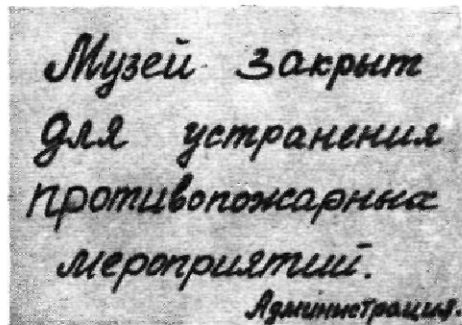 Музей закрыт
для устранения
противопожарных
мероприятий.
Администрация.